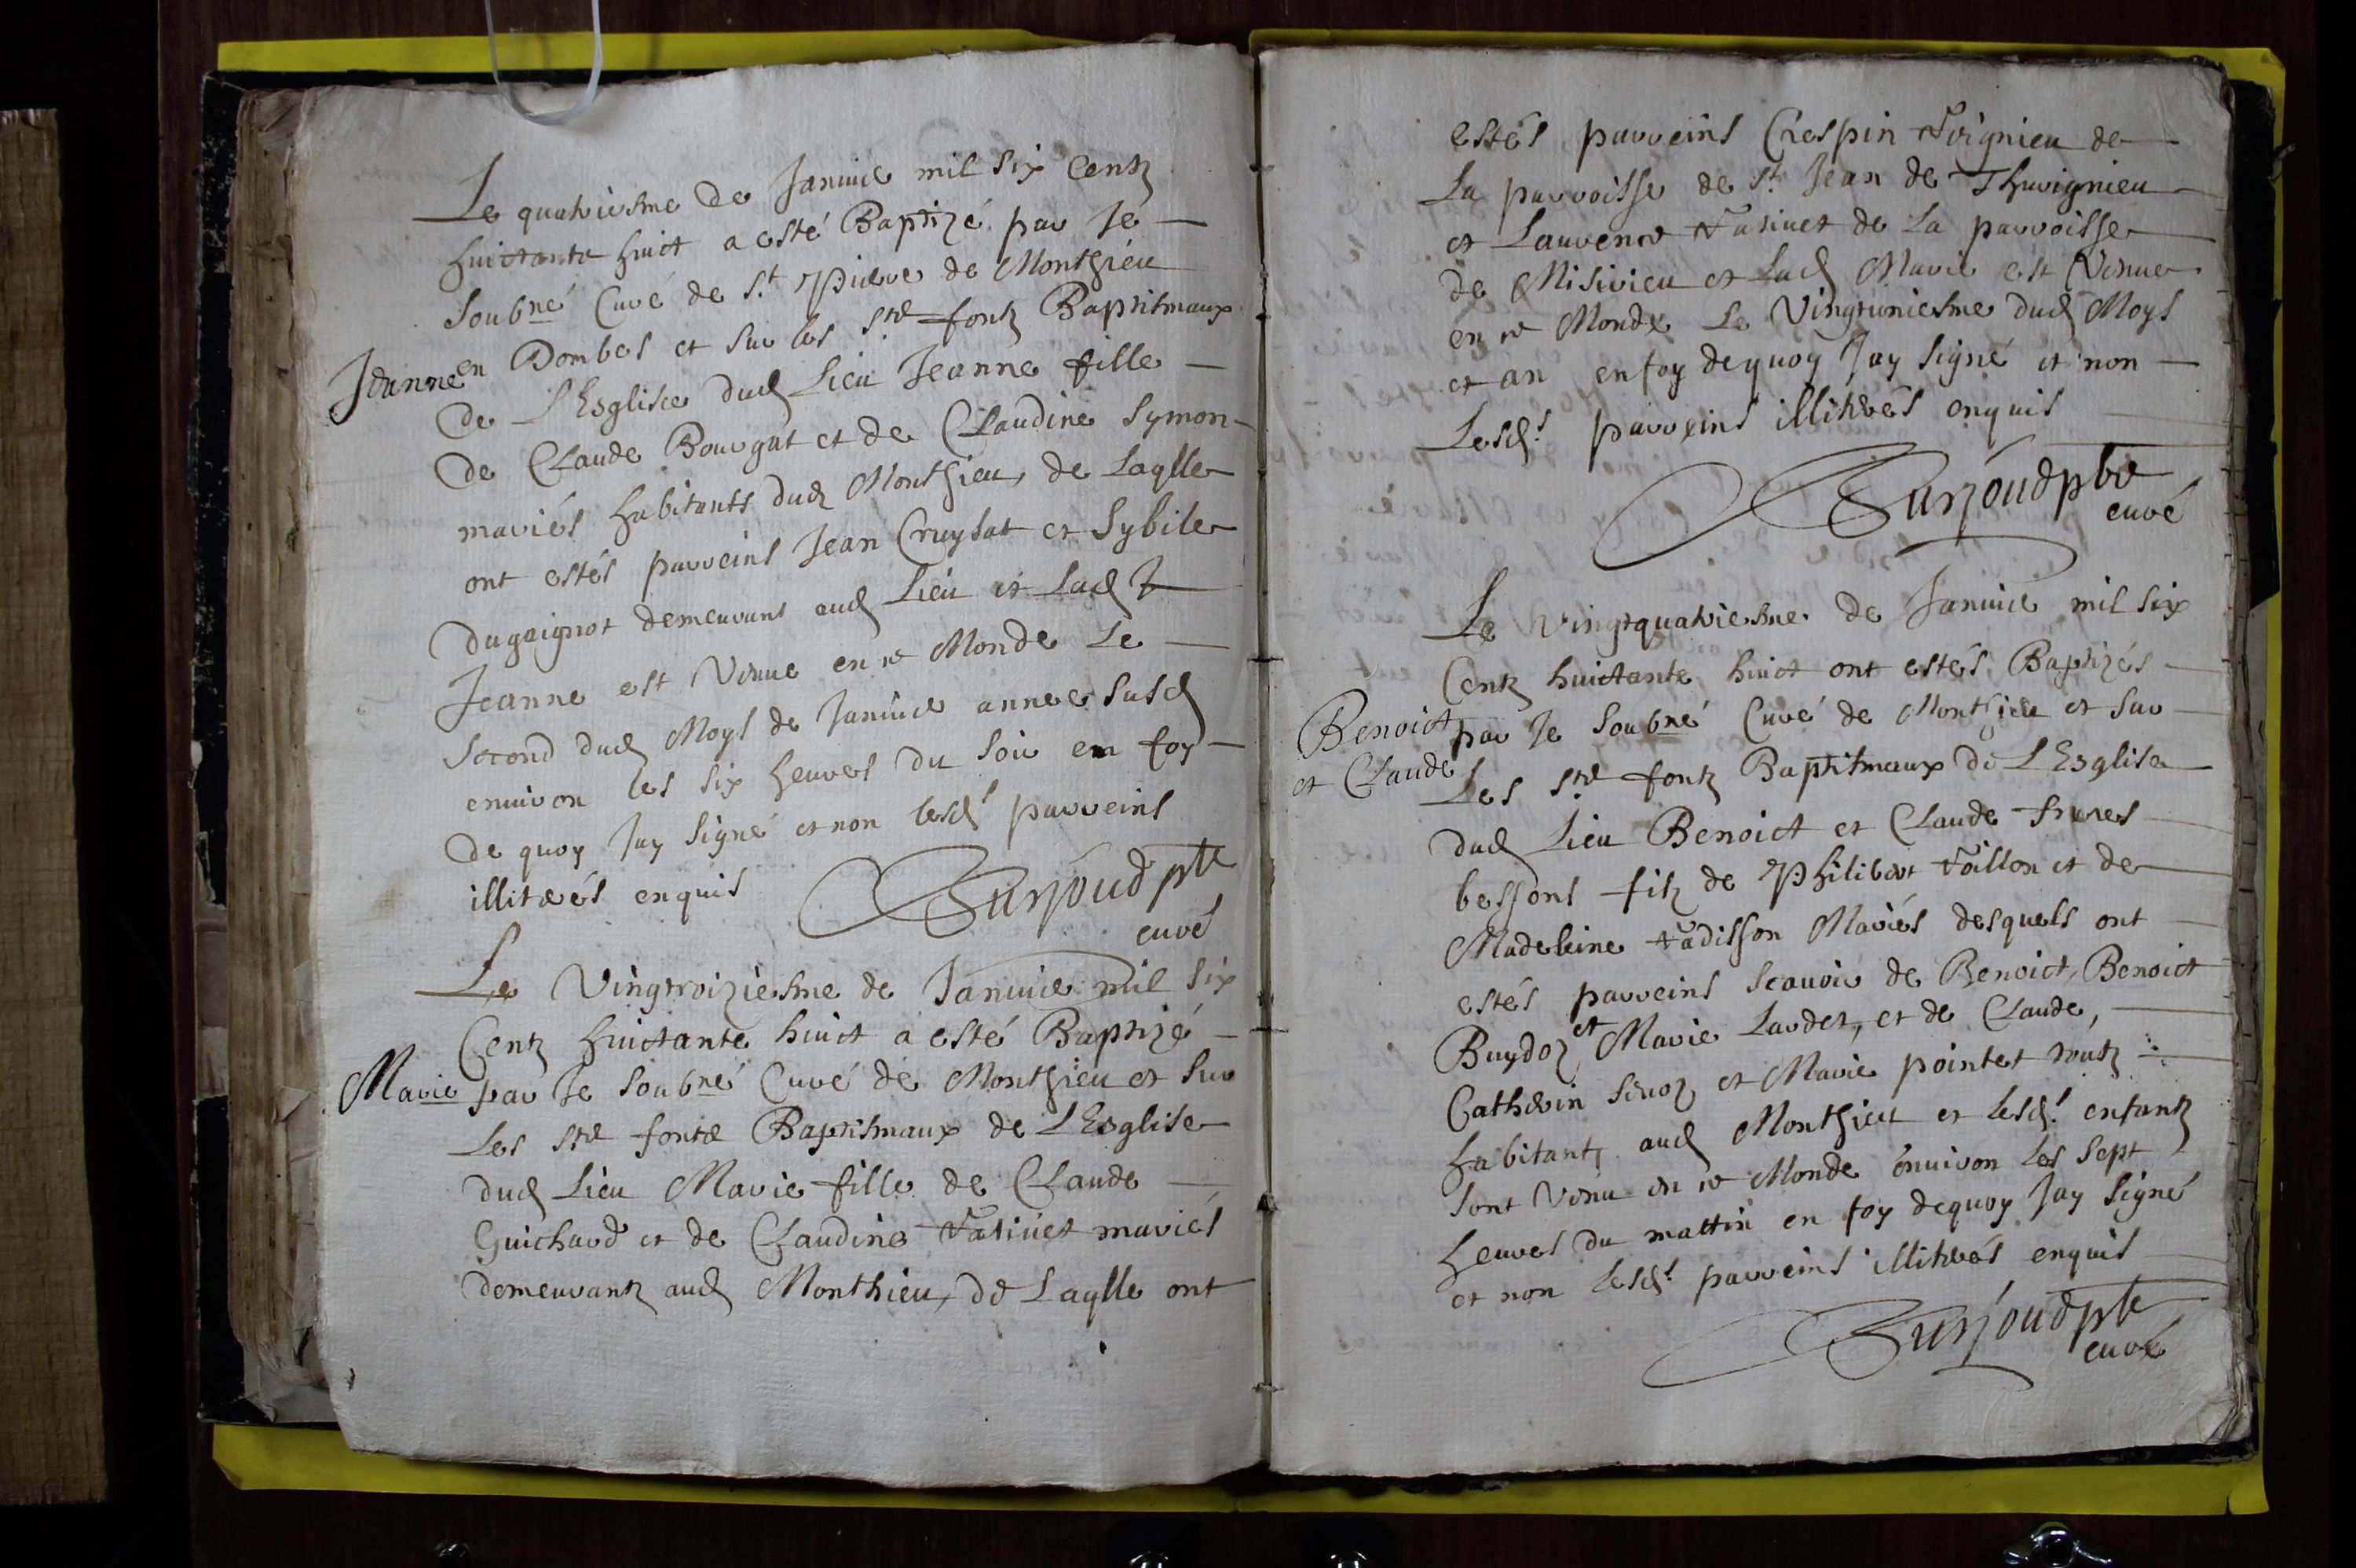 Le quatriesme de Januier mil six Centz
huictante huict a esté Baptizé par Je
soubné Curé de St. Pierre de Monthieu
Jeanne
en Dombes et sur les stes fontz Baptismaux
de L'Esglise dud Lieu Jeanne fille
de Claude Bourgat et de Claudine Symon
mariés habitants dud Monthieu, de Laqlle
ont estés parreins Jean Cruysat et Sybile
Dugaignot demeurans aud Lieu et Lad J
Jeanne est Venue en ce Monde Le
second dud Moys de Januier annee susd
enuiron les six heures du soir en foy
de quoy Jay signé et non lesds parreins
illiterés enquis
Surjoud pbre
curé
Le Vingtroiziesme de Januier mil six
Centz huictante huict a esté Baptizé
Marie
par Je soubné Curé de Monthieu et sur
Les stes fonts Baptismaux de L'Esglise
dud Lieu Marie fille de Claude
Guichard et de Claudine Vatinet mariés
demeurantz aud Monthieu, de Laqlle ont
estés parreins Crespin
de
La parroisse de St Jean de Thurignieu
et Laurence Vatinet de La parroisse
de Misirieu et Lad Marie est Venue
en ce Monde Le Vingtuniesme dud Moys
et an en foy de quoy Jay signé et non
Lesds parreins illiterés enquis
Surjoud pbre
curé
Le vingtquatriesme de Januier mil six
Centz huictante huict ont estés Baptizés
Benoict
et Claude
par Je soubné Curé de Monthieu et sur
Les stes fontz Baptismaux de L'Esglise
dud Lieu Benoict et Claude freres
bessons filz de Philibert Voillon et de
Madeleine Vadisson Mariés desquels ont
estés parreins scauoir de Benoict, Benoict
Buydoz et Marie Lardet, et de Claude,
Catherin Seuoz et Marie pointet toutz
habitantz aud Monthieu et lesds enfantz
sont Venu en ce Monde enuiron les sept
heures du mattin en foy dequoy Jay signé
et non lesds parreins illiterés enquis
Surjoud pbre
curé